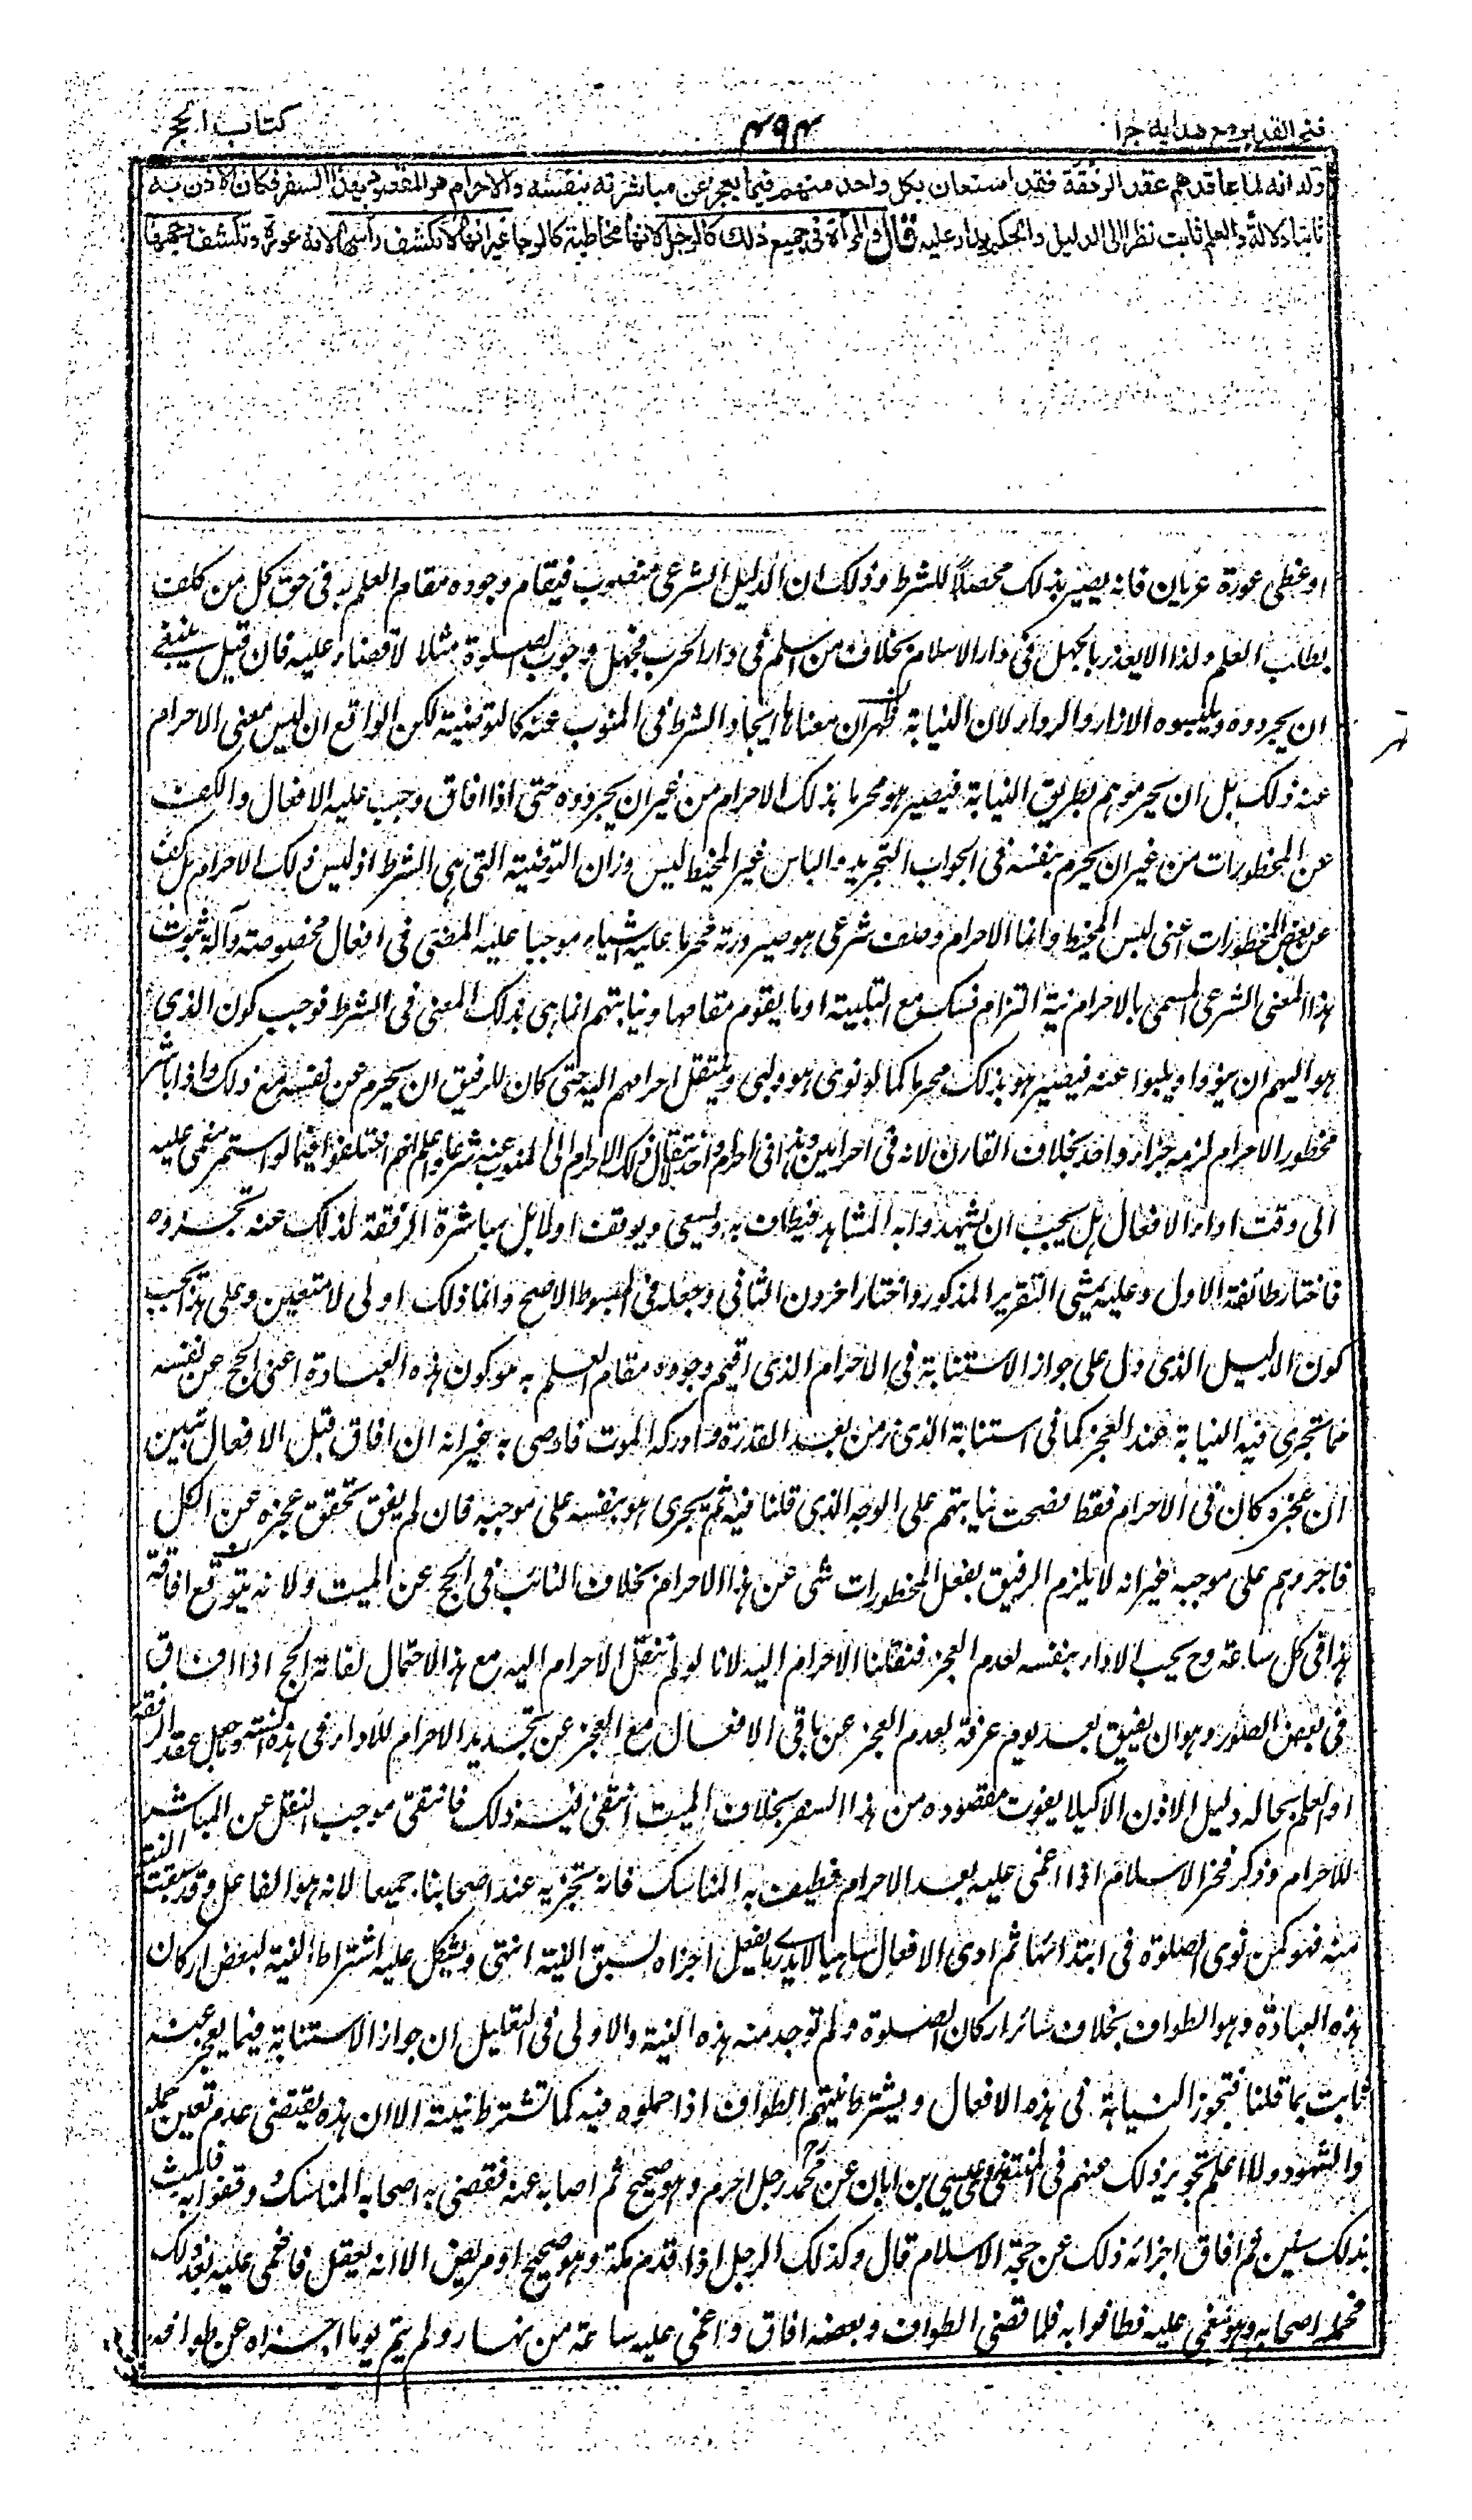 فتح القدير مع هدايه ج ١
٤٩٤
كتاب الحج
وله انه لما عاقدهم عقد الرفقة فقد استعان بكل واحد منهم فيما يعجز عن مباشرته بنفسه والاحرام هو المقصود بهذا السفر فكان الاذن به
ثابتا دلالة والعلم ثابت نظرا الى الدليل والحكم يدار عليه قال والمرأة فى جميع ذلك كالرجل لانها مخاطبة كالرجل غير انها لا تكشف رأسها لانه عورة وتكشف وجهها
او غطى عورة عريان فانه يصير بذلك محصلا للشرط وذلك ان الدليل الشرعى منصوب فيقام وجوده مقام العلم به فى حق كل من كلف
بطلب العلم ولذا لا يعذر بالجهل فى دار الاسلام بخلاف من اسلم فى دار الحرب فجهل وجوب الصلوة مثلا لا قضاء عليه فان قيل ينبغى
ان يجردوه ويلبسوه الازار والرداء لان النيابة ظهر ان معناها ايجاد الشرط فى المنوب عنه كالتوضية لكن الواقع ان ليس معنى الاحرام
عنه ذلك بل ان يحرموا هم بطريق النيابة فيصير هو محرما بذلك الاحرام من غير ان يجردوه حتى اذا افاق وجب عليه الافعال والكف
عن المحظورات من غير ان يحرم بنفسه فى الجواب التجريد والباس غير المخيط ليس وزان التوضية التى هى الشرط اذ ليس ذلك الاحرام بل كف
عن بعض المحظورات اعنى لبس المخيط وانما الاحرام وصف شرعى هو صيرورته محرما عليه اشياء موجبا عليه المضى فى افعال مخصوصة وآلة ثبوت
هذا المعنى الشرعى المسمى بالاحرام نية التزام نسك مع التلبية او ما يقوم مقامها ونيابتهم انما هى بذلك المعنى فى الشرط فوجب كون الذى
هو اليهم ان ينووا ويلبوا عنه فيصير هو بذلك محرما كما لو نوى هو ولبى وينتقل احرامهم اليه حتى كان للرفيق ان يحرم عن نفسه مع ذلك واذا باشر
محظور الاحرام لزمه جزاء واحد بخلاف القارن لانه فى احرامين وهذا فى احرام واحد لانتقال ذلك الاحرام الى المنوب عنه شرعا واعلم انهم اختلفوا فيما لو استمر مغمى عليه
الى وقت اداء الافعال هل يجب ان يشهدوا به المشاهد فيطاف به ويسعى ويوقف اولا بل مباشرة الرفقة لذلك عنه تجزئه
فاختار طائفة الاول وعليه يمشى التقرير المذكور واختار اخرون الثانى وجعله فى المبسوط الاصح وانما ذلك اولى لا متعين وعلى هذا يجب
كون الدليل الذى دل على جواز الاستنابة فى الاحرام الذى اقيم وجوده مقام العلم به هو كون هذه العبادة اعنى الحج عن نفسه
مما تجرى فيه النيابة عند العجز كما فى استنابة الذى زمن بعد القدرة وادركه الموت فاوصى به غير انه ان افاق قبل الافعال تبين
ان عجزه كان فى الاحرام فقط فصحت نيابتهم على الوجه الذى قلنا فيه ثم يجرى هو بنفسه على موجبه فان لم يفق تحقق عجزه عن الكل
فاجروهم على موجبه غير انه لا يلزم الرفيق بفعل المحظورات شى عن هذا الاحرام بخلاف النائب فى الحج عن الميت ولانه يتوقع افاقة
هذا فى كل ساعة وح يجب الاداء بنفسه لعدم العجز فنقلنا الاحرام اليه لانا لو لم ننقل الاحرام اليه مع هذا الاحتمال لفاته الحج اذا افاق
فى بعض الصور وهو ان يفيق بعد يوم عرفة لعدم العجز عن باقى الافعال مع العجز عن تجديد الاحرام للاداء فى هذه السنة وجعل عقد الرفقة
او العلم بحاله دليل الاذن الا كيلا يفوت مقصوده من هذا السفر بخلاف الميت انتفى فيه ذلك فانتفى موجب النقل عن المباشر
للاحرام وذكر فخر الاسلام اذا اغمى عليه بعد الاحرام فطيف به المناسك فانه يجزيه عند اصحابنا جميعا لانه هو الفاعل وقد سبقت النية
منه فهو كمن نوى الصلوة فى ابتدائها ثم ادى الافعال ساهيا لا يدرى ما يفعل اجزاه لسبق النية انتهى ويشكل عليه اشتراط النية لبعض اركان
هذه العبادة وهو الطواف بخلاف سائر اركان الصلوة ولم توجد منه هذه النية والاولى فى التعليل ان جواز الاستنابة فيما يعجز عنه
ثابت بما قلنا فتجوز النيابة فى هذه الافعال ويشترط نيتهم الطواف اذا حملوه فيه كما تشترط نيته الا ان هذه يقتضى عدم تعين حمله
والشهود ولا اعلم تجويز ذلك عنهم فى المنتقى عيسى بن ابان عن محمد رجل احرم وهو صحيح ثم اصابه عته فقضى به اصحابه المناسك ووقفوا به فلبث
بذلك سنين ثم افاق اجزائه ذلك عن حجة الاسلام قال وكذلك الرجل اذا قدم مكة وهو صحيح او مريض الا انه يعقل فاغمى عليه بعد ذلك
فحمله اصحابه وهو مغمى عليه فطافوا به فلما قضى الطواف وبعضه افاق واغمى عليه ساعة من نهار ولم يتم يوما اجزاه عن طوافه